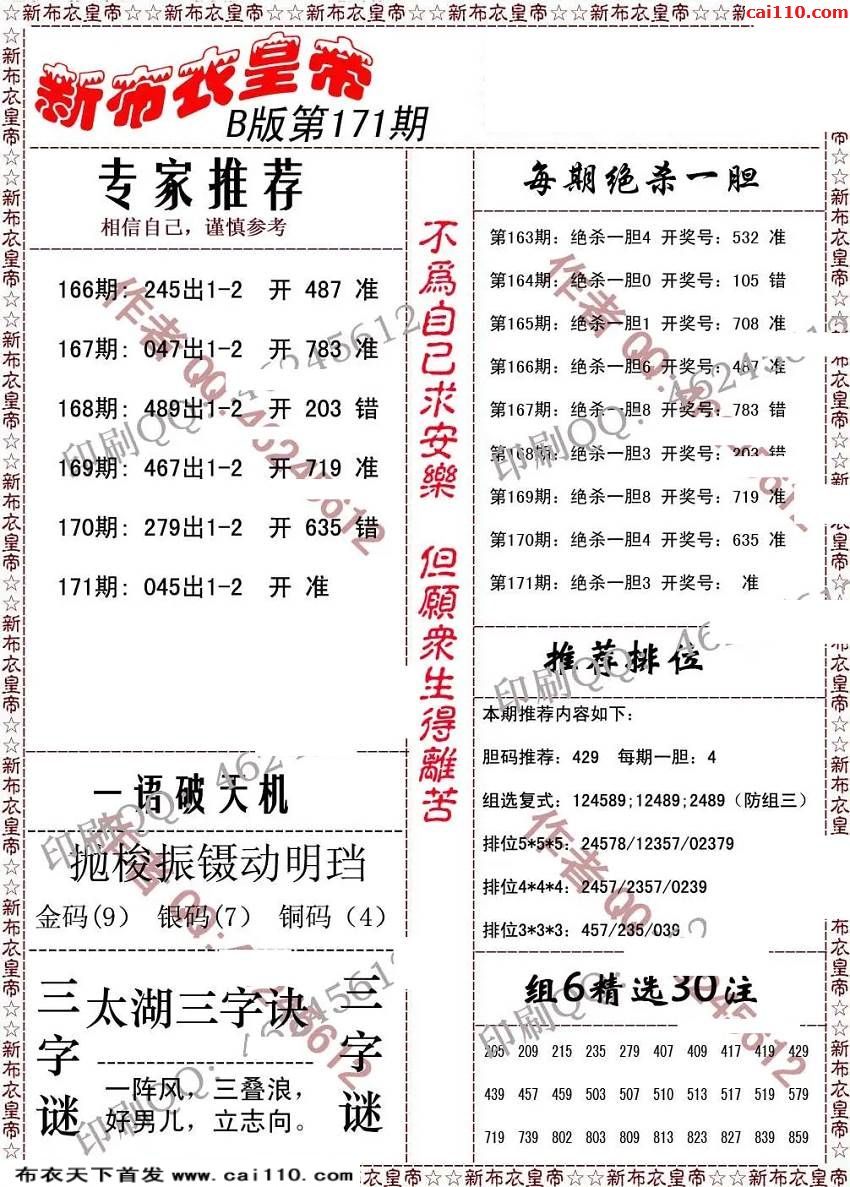 ☆☆新布衣皇帝☆☆新布衣皇帝☆☆新布衣皇帝☆☆新布衣皇帝☆☆新布衣皇帝☆☆新
cai110.com
新布衣皇帝
B版第171期
专家推荐
相信自己，谨慎参考
166期: 245出1-2 开 487 准
167期: 047出1-2 开 783 准
168期: 489出1-2 开 203 错
169期: 467出1-2 开 719 准
170期: 279出1-2 开 635 错
171期: 045出1-2 开 准
一语破天机
抛梭振镊动明珰
金码(9) 银码(7) 铜码（4）
三字谜
太湖三字诀
一阵风，三叠浪，
好男儿，立志向。
三字谜
不為自己求安樂 但願衆生得離苦
每期绝杀一胆
第163期: 绝杀一胆4 开奖号: 532 准
第164期: 绝杀一胆0 开奖号: 105 错
第165期: 绝杀一胆1 开奖号: 708 准
第166期: 绝杀一胆6 开奖号: 487 准
第167期: 绝杀一胆8 开奖号: 783 错
第168期: 绝杀一胆3 开奖号: 203 错
第169期: 绝杀一胆8 开奖号: 719 准
第170期: 绝杀一胆4 开奖号: 635 准
第171期: 绝杀一胆3 开奖号: 准
推荐排位
本期推荐内容如下:
胆码推荐: 429 每期一胆: 4
组选复式: 124589;12489;2489（防组三）
排位5*5*5: 24578/12357/02379
排位4*4*4: 2457/2357/0239
排位3*3*3: 457/235/039
组6精选30注
205 209 215 235 279 407 409 417 419 429
439 457 459 503 507 510 513 517 519 579
719 739 802 803 809 813 823 827 839 859
作者 QQ:46245612
印刷QQ: 46245612
布衣天下首发 www.cai110.com
衣皇帝☆☆新布衣皇帝☆☆新布衣皇帝☆☆新布衣皇帝☆